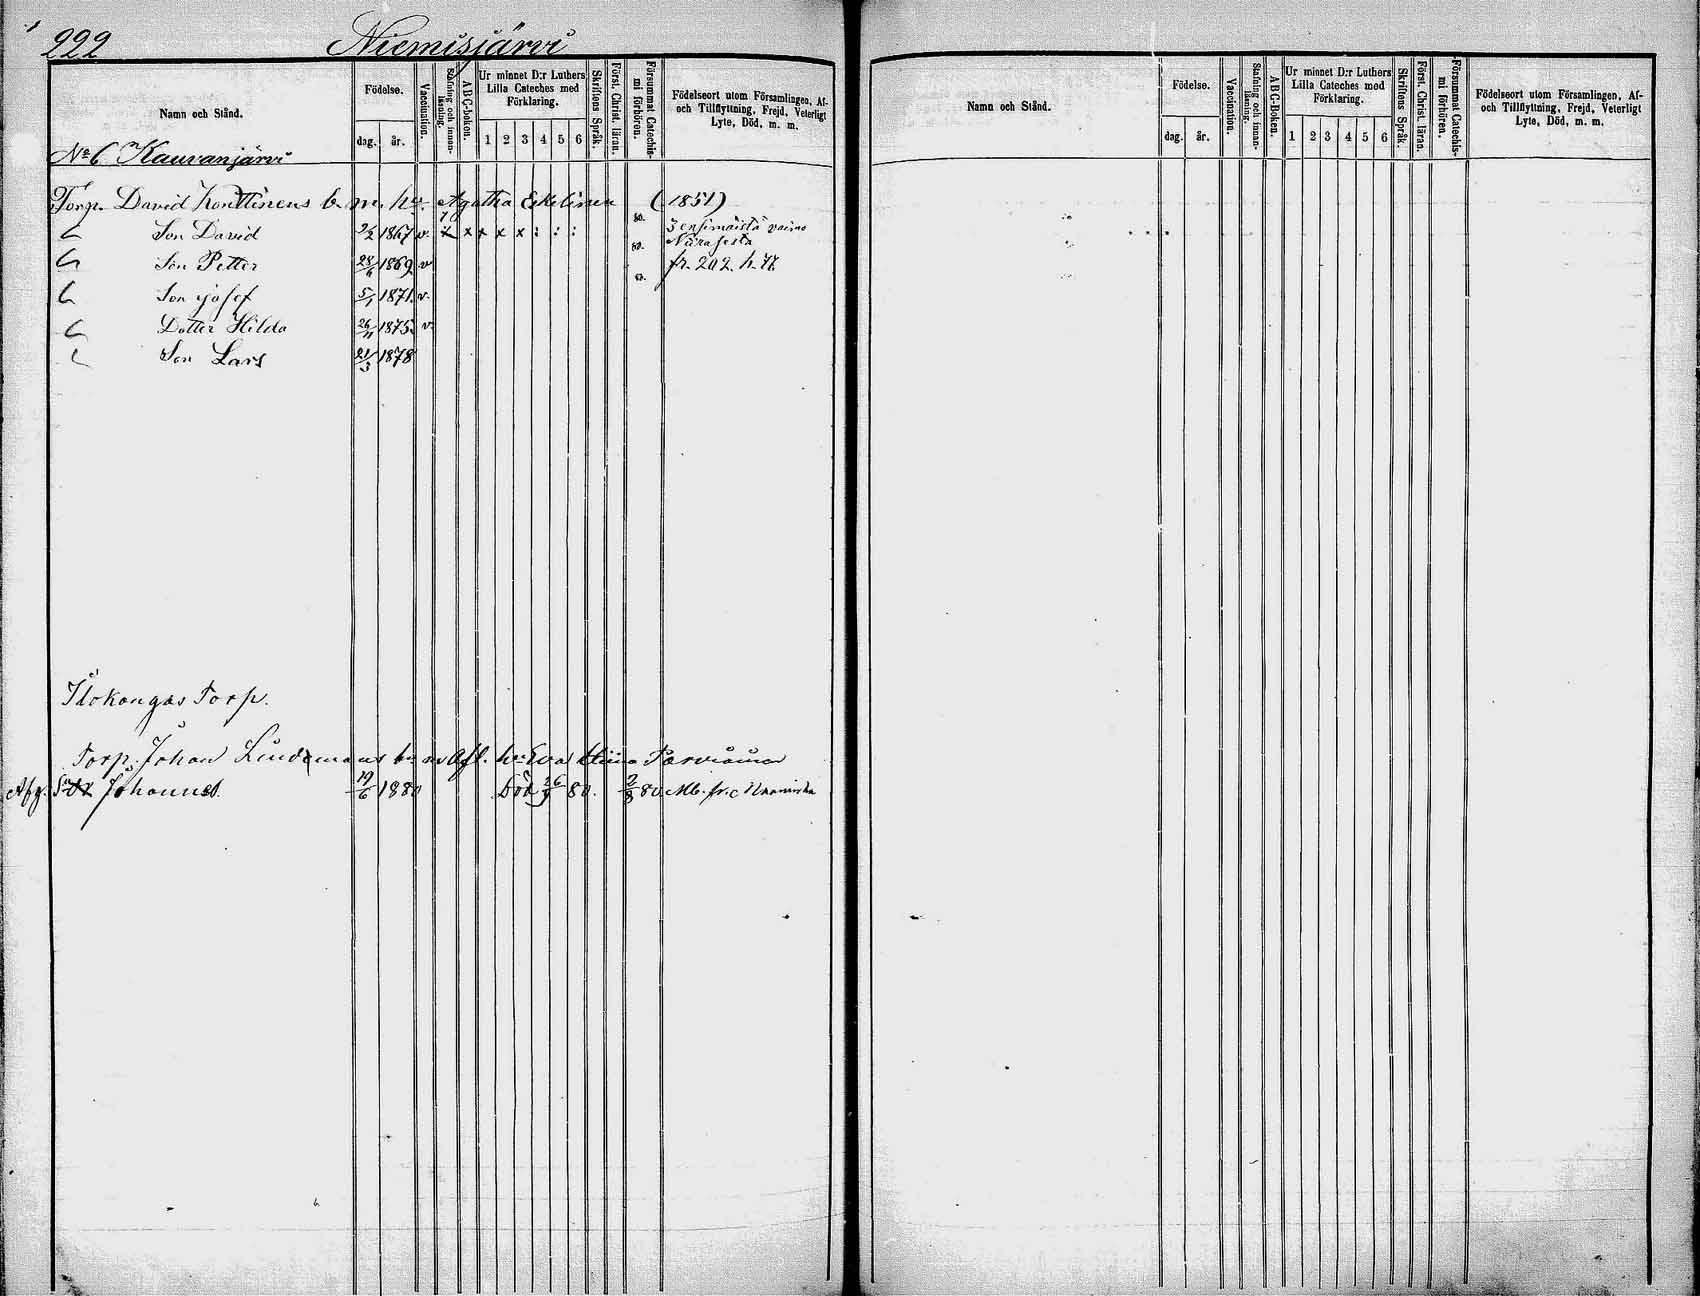 222 Niemisjärvi
Namn och Stånd.
Födelse.
dag. år.
Vaccination.
Stafning och innan-läsning.
A B C-boken.
Ur minnet D:r Luthers
Lilla Cateches med
Förklaring.
1 2 3 4 5 6
Skriftens Språk.
Först. Christ. läran.
Försummat Catechis-
mi förhören.
Födelseort utom Församlingen, Af-
och Tillflyttning, Frejd, Veterligt
Lyte, Död, m. m.
No 6 Kauvanjärvi
Torp. David Konttinens b. m. hu. Agatha Eskelinen (1851)
Son David 2/2 1867 v. x x x x x : : : 3 ensimäistä vaimo
Son Petter 28/6 1869 v fr. 202. h.
Son Josef 5/1 1871. v.
Dotter Hilda 26/11 1875 v
Son Lars 21/3 1878
Ilokangas Torp.
Torp. Johan Lindemans
Johannes 19/6 1880 Död 26/9 80. 7/8 80. Mb. fr.
Namn och Stånd.
Födelse.
dag. år.
Vaccination.
Stafning och innan-läsning.
A B C-Boken.
Ur minnet D:r Luthers
Lilla Cateches med
Förklaring.
1 2 3 4 5 6
Skriftens Språk.
Först. Christ. läran.
Försummat Catechis-
mi förhören.
Födelseort utom Församlingen, Af-
och Tillflyttning, Frejd, Veterligt
Lyte, Död, m. m.